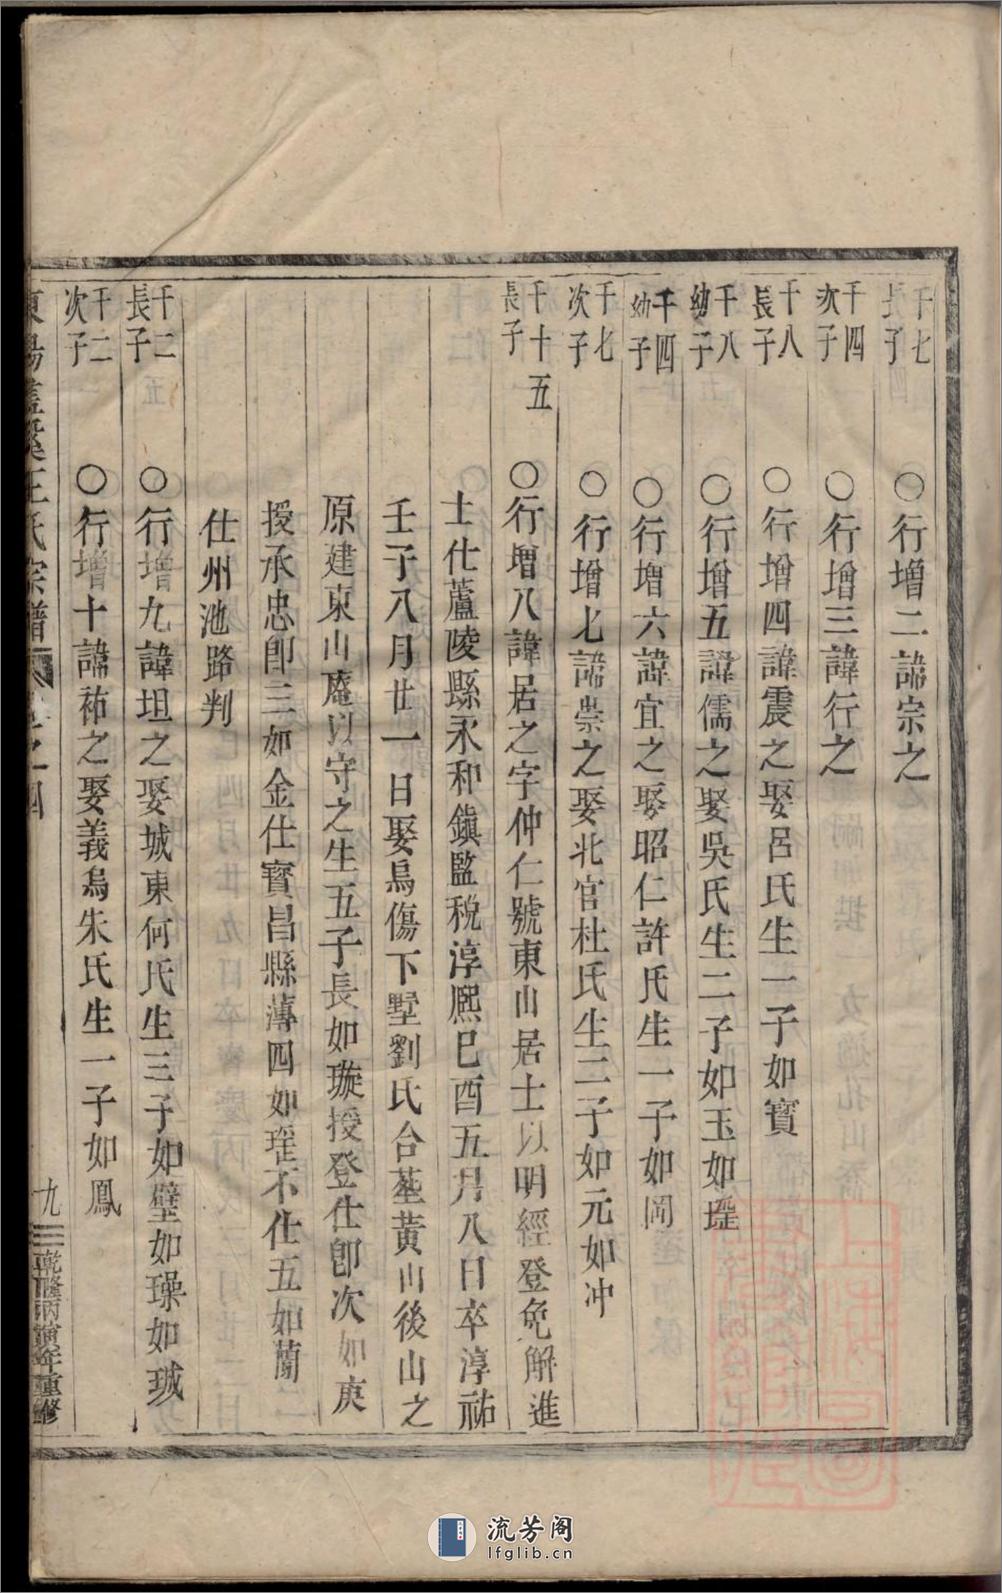 千七長子
○行增二諱宗之
千四次子
○行增三諱行之
千八長子
○行增四諱震之娶呂氏生一子如寳
千八幼子
○行增五諱儒之娶吳氏生二子如玉如瑆
千四幼子
○行增六諱宜之娶昭仁許氏生一子如岡
千七次子
○行增七諱崇之娶北官杜氏生二子如元如冲
千十五長子
○行增八諱居之字仲仁號東山居士以明經登免解進
士仕蘆陵縣永和鎭監稅淳熈巳酉五月八日卒淳祐
壬子八月廿一日娶烏傷下墅劉氏合塟黃山後山之
原建東山庵以守之生五子長如璇授登仕郎次如庚
授承忠郎三如金仕寳昌縣薄四如瑆不仕五如蘭
仕州池路判
千二長子
○行增九諱坦之娶城東何氏生三子如璧如璪如珹
千二次子
○行增十諱祐之娶義烏朱氏生一子如鳳
東陽 溪王氏宗譜 卷之四
九
乾隆丙寅年重修
流芳阁
lfglib.cn